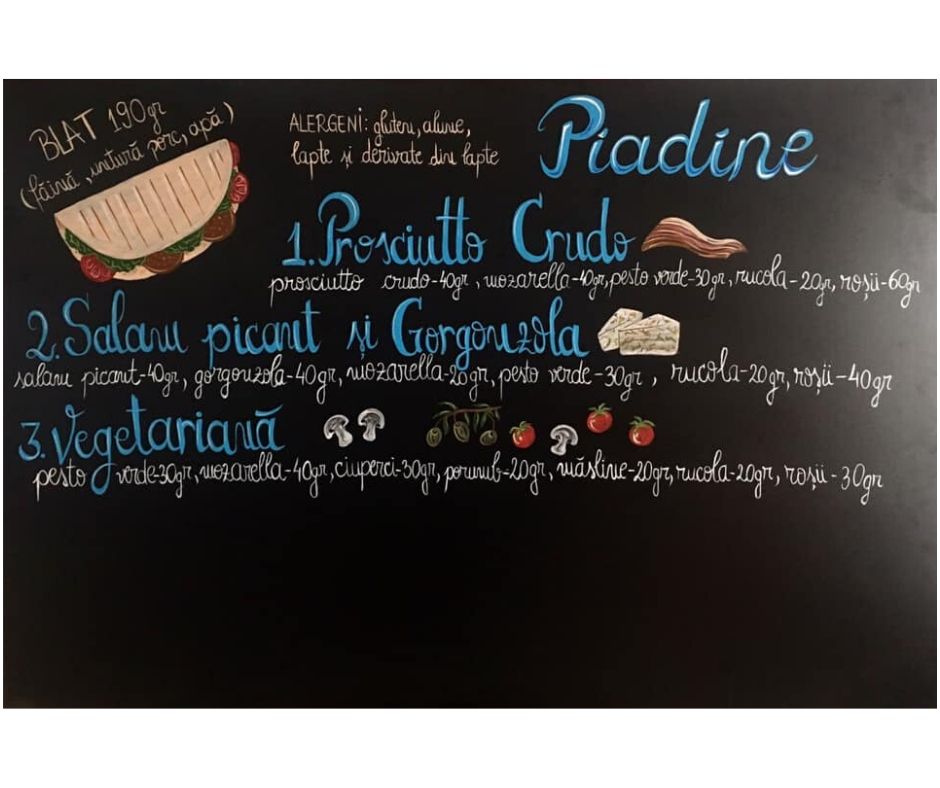 BLAT 190gr
(făină, untură porc, apă)
ALERGENI: gluten, alune,
lapte și derivate din lapte
Piadine
1. Prosciutto Crudo
prosciutto crudo-40gr, mozarella-40gr, pesto verde-30gr, rucola-20gr, roșii-60gr
2. Salam picant și Gorgonzola
salam picant-40gr, gorgonzola-40gr, mozarella-20gr, pesto verde-30gr, rucola-20gr, roșii-40gr
3. Vegetariană
pesto verde-30gr, mozarella-40gr, ciuperci-30gr, porumb-20gr, măsline-20gr, rucola-20gr, roșii-30gr